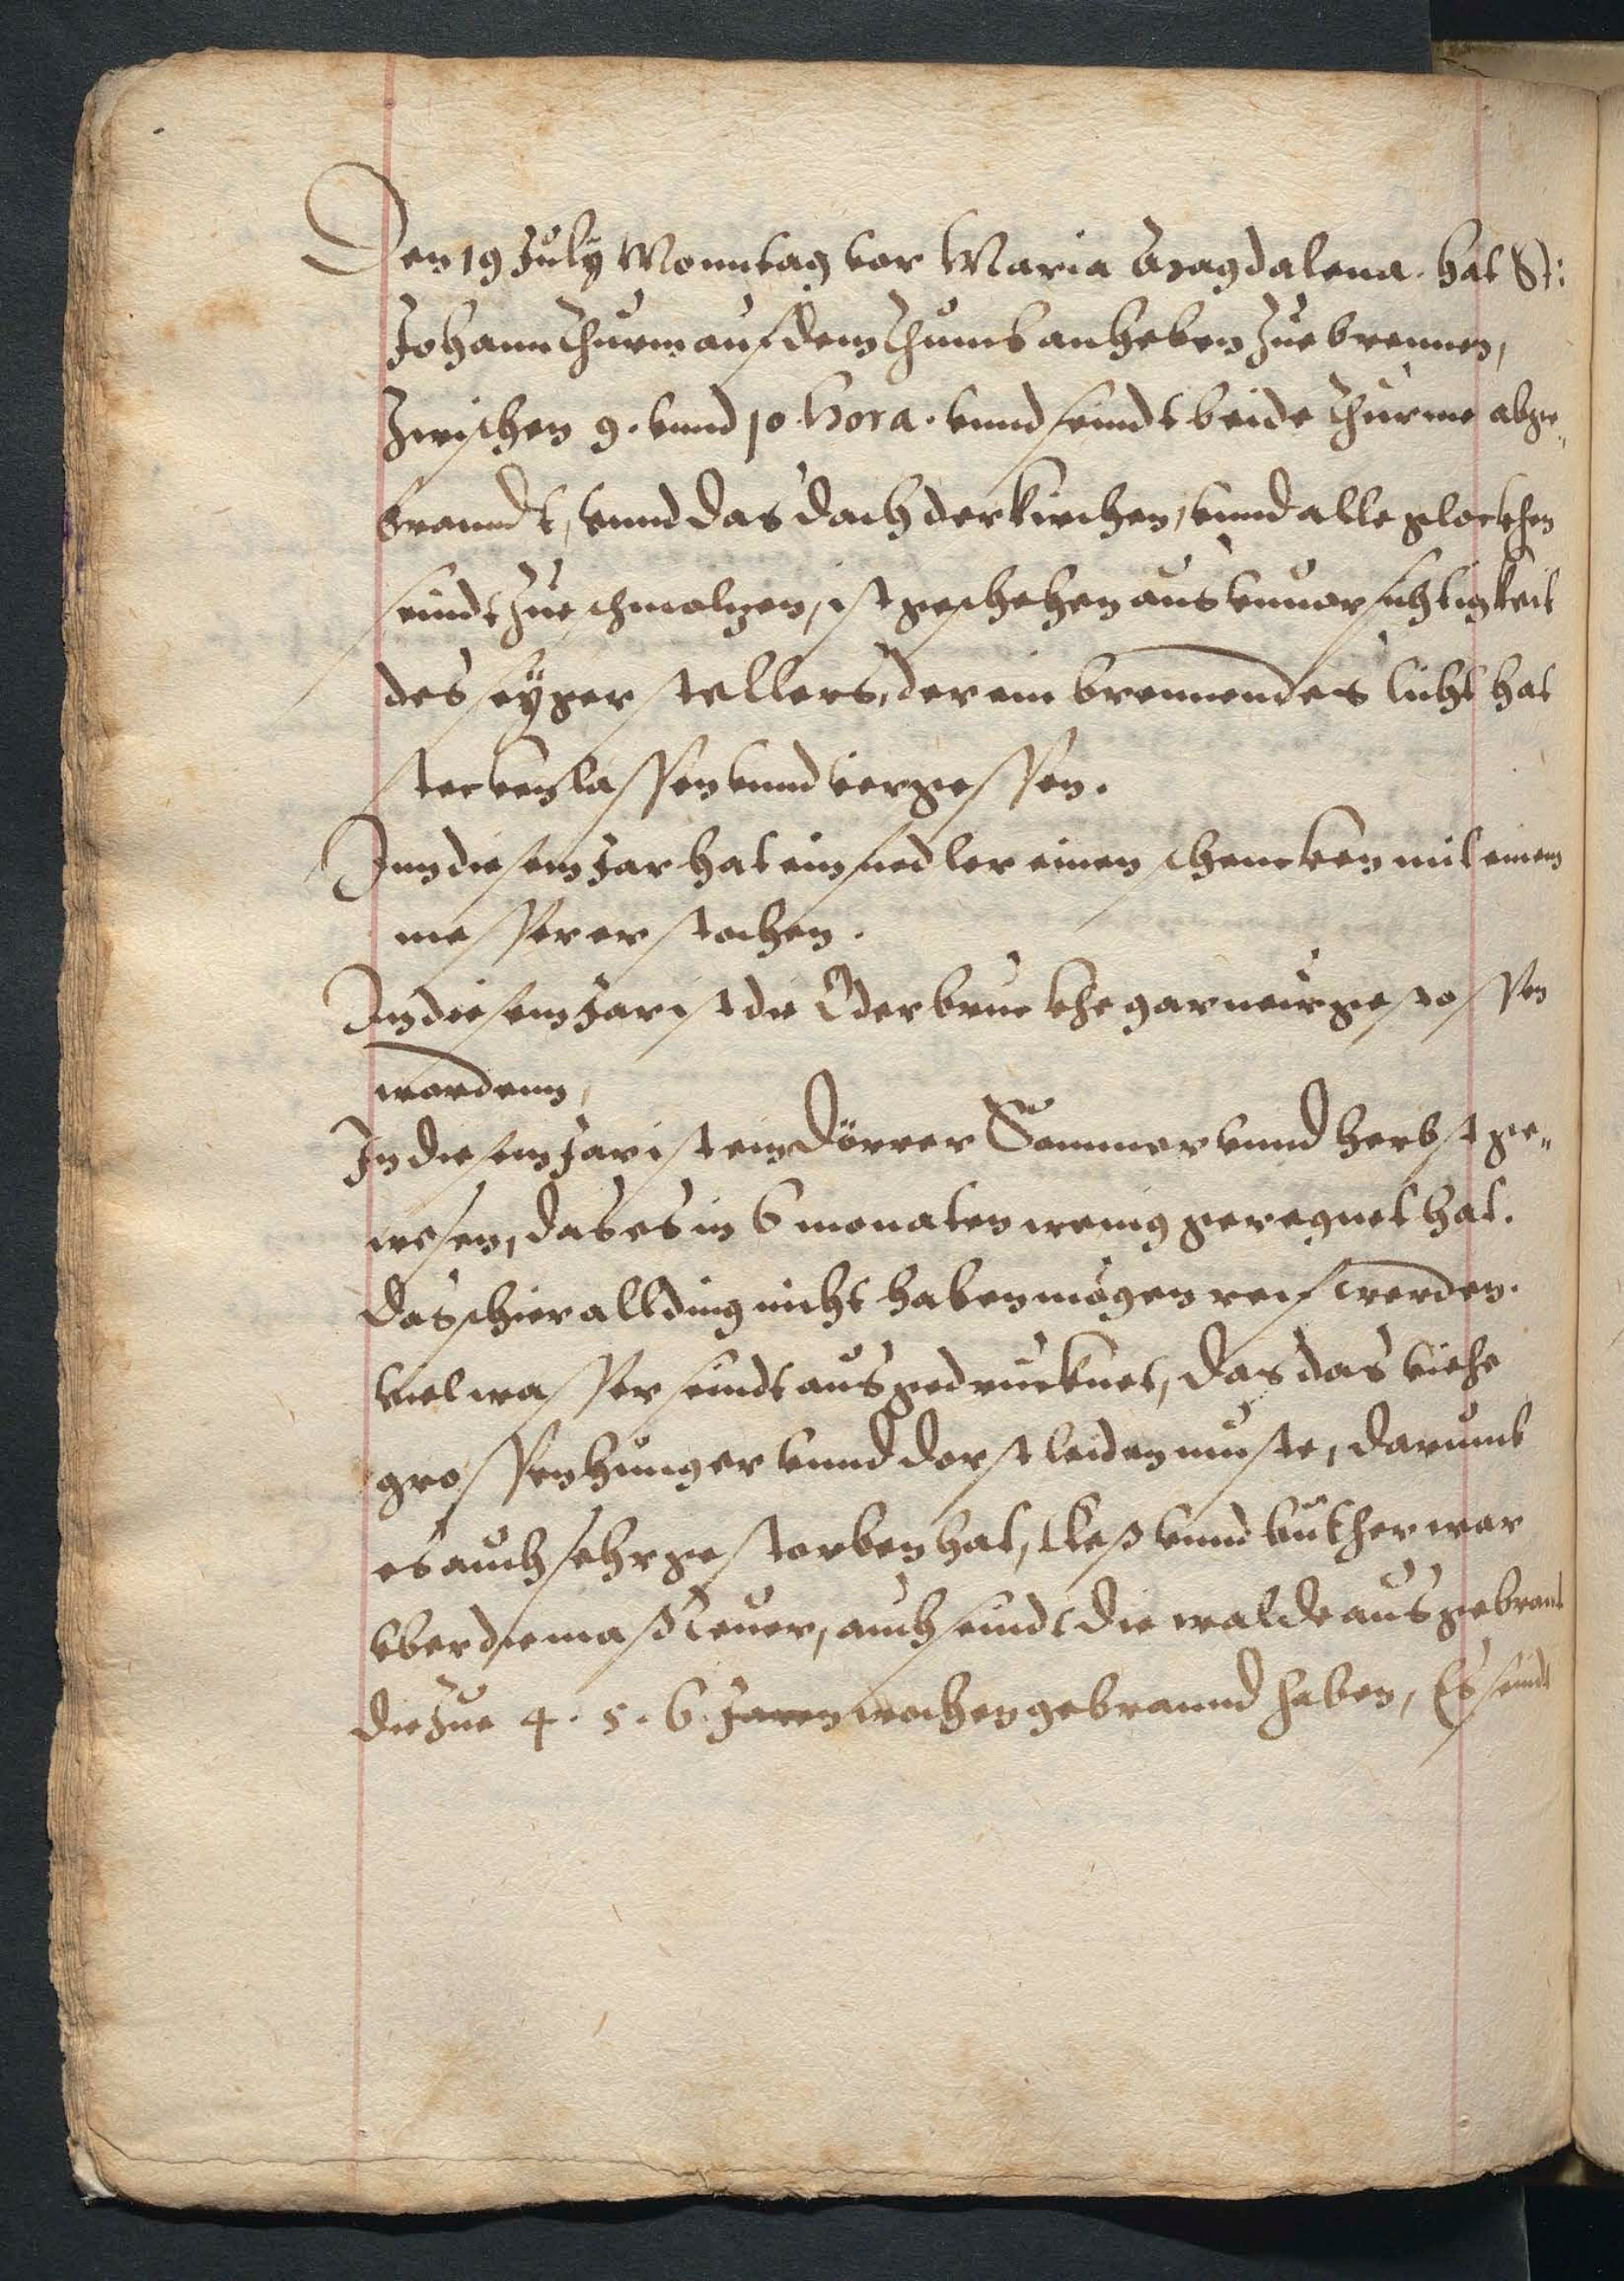 Den 19 July Monntag vor Maria Magdalena. hat St:
Johann Thurm auf dem Thumb anheben zue brennen,
Zwischen 9. vnnd 10 hora. vnnd seindt beide Thurme abge„
branndt, vnnd das dach der kirchen, vnnd alle glockhen
seindt zueschmolzen, ist geschehen aus vnuorsichtigkeit
des seÿgerstellers, der ein brennendes licht hat
steckenlassen vnnd vergessen.
Inn diesem Jar hat ein fiedler einen schencken mit einem
messer erstochen.
In diesem Jar ist die Oderbruckhe gar
wordenn,
In diesem Jar ist ein dörrer Sommer vnnd herbst ge„
wesen, das es in 6 monaten wenig geregnet hat.
das schier allding nicht haben mögen reif werden.
viel wasser seindt ausgedrucknet, das das viehe
grossen hunger vnnd dorst leiden muste, darumb
es auch sehr gestorben hat, kleß vnnd buther war
vber die maß teuer, auch seindt die walde ausgebrant
die zue 4. 5. 6. Jaren wochen gebrannd haben, Es seindt